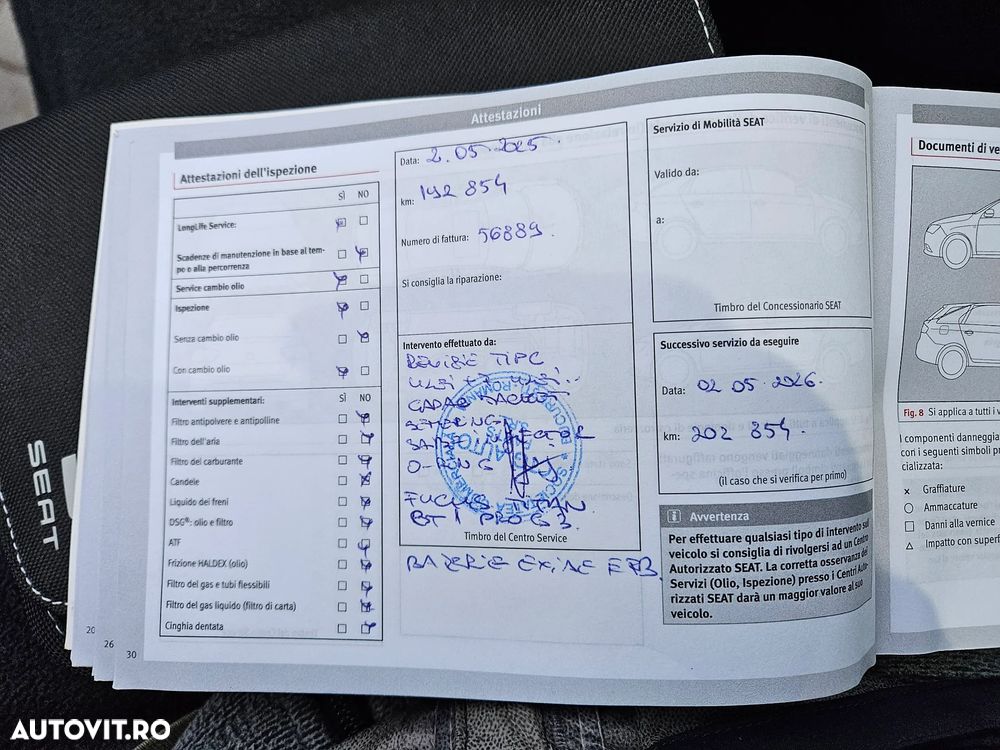 Attestazioni
Attestazioni dell'ispezione
SÌ NO
LongLife Service:
Scadenze di manutenzione in base al tem-
po o alla percorrenza
Service cambio olio
Ispezione
Senza cambio olio
Con cambio olio
Interventi supplementari: SÌ NO
Filtro antipolvere e antipolline
Filtro dell'aria
Filtro del carburante
Candele
Liquido dei freni
DSG®: olio e filtro
ATF
Frizione HALDEX (olio)
Filtro del gas e tubi flessibili
Filtro del gas liquido (filtro di carta)
Cinghia dentata
Data: 2.05.2025.
km: 192 854
Numero di fattura: 56889.
Si consiglia la riparazione:
Intervento effettuato da:
REVIZIE TIP C
CAPAC
O-RING
FUCHS TITAN
GT1 PRO C3
Timbro del Centro Service
BATERIE EXIDE EFB
Servizio di Mobilità SEAT
Valido da:
a:
Timbro del Concessionario SEAT
Successivo servizio da eseguire
Data: 02 05 2026.
km: 202 854.
(il caso che si verifica per primo)
Avvertenza
Per effettuare qualsiasi tipo di intervento sul
veicolo si consiglia di rivolgersi ad un Centro
Autorizzato SEAT. La corretta osservanza dei
Servizi (Olio, Ispezione) presso i Centri Auto-
rizzati SEAT darà un maggior valore al suo
veicolo.
Documenti di ve
Fig. 8 Si applica a tutti i v
I componenti danneggia
con i seguenti simboli pr
cializzata:
× Graffiature
○ Ammaccature
□ Danni alla vernice
△ Impatto con superf
SEAT
20
26
30
AUTOVIT.RO